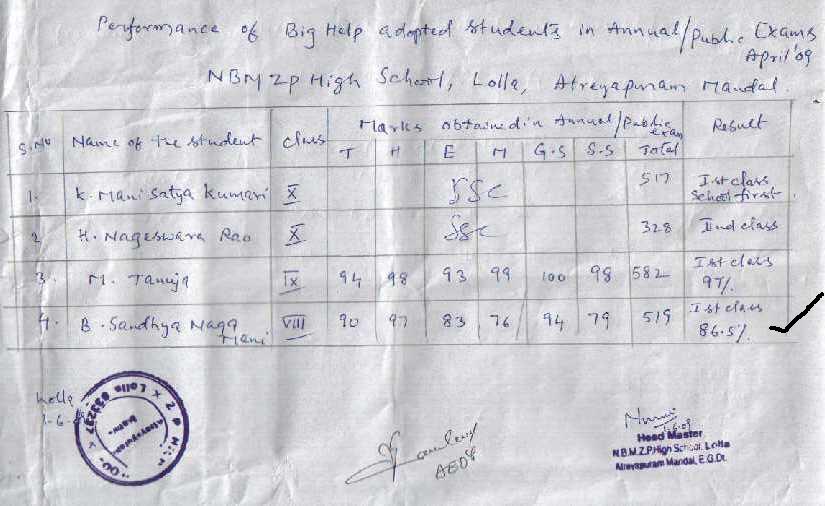 Performance of Big Help adopted students in Annual/Public Exams
April'09
NBMZP High School, Lolla, Atreyapuram Mandal.
S.No Name of the student Class Marks obtained in Annual/Public exam Result
T H E M G.S S.S Total
1. K. Mani Satya Kumari X SSC 517 Ist class School first.
2 H. Nageswara Rao X SSC 328 IInd class
3. M. Tanuja IX 94 98 93 99 100 98 582 Ist class 97%
4. B. Sandhya Naga Mani VIII 90 97 83 76 94 79 519 Ist class 86.5%.
Lolla
Head Master
N.B.M.Z.P.High School, Lolla
Atreyapuram Mandal, E.G.Dt.